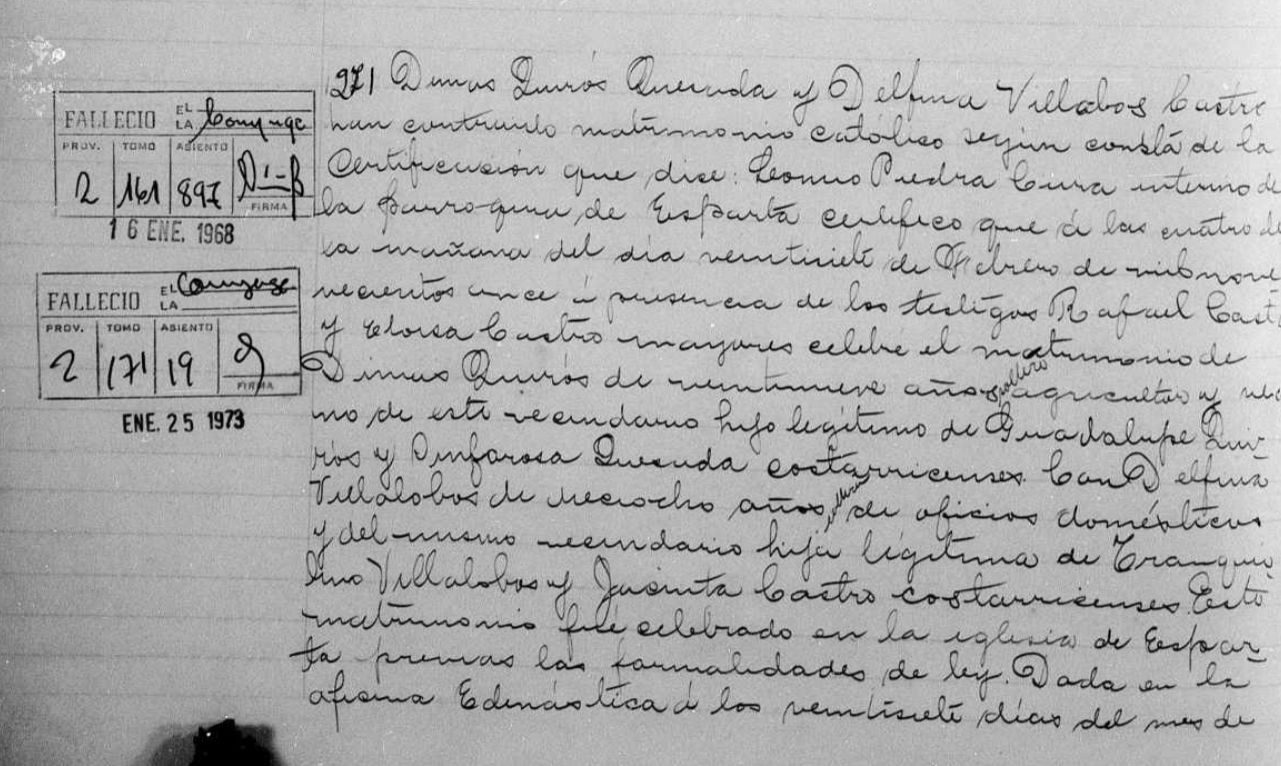 FALLECIO EL LA Conyuge
PROV. TOMO ASIENTO
2 161 897
FIRMA
16 ENE. 1968
FALLECIO EL LA Conyuge
PROV. TOMO ASIENTO
2 171 19
FIRMA
ENE. 25 1973
271 Dimas Quirós Quesada y Delfina Villabos Castro
han contraido matrimonio católico según constá de la
Certificasión que dise: Leonnio Piedra Cura interino de
la parroquia de Esparta certifico que á las cuatro de
la mañana del día veintisiete de Febrero de mil nove
vecientos once á presencia de los testigos Rafael Cast
y Eloisa Castro mayores celebre el matrimonio de
Dimas Quirós de veintinueve años soltero agricultor y veci
no de este vecindario hijo legitimo de Guadalupe Qui-
rós y Sinforosa Quesada costarricenses. Con Delfina
Villalobos de dieciocho años, soltera de oficios domésticos
y del mismo vecindario hija legitima de Tranqui
lino Villalobos y Jacinta Castro costarricenses. Este
matrimonio fué celebrado en la iglesia de Espar-
ta previas las formalidades de ley. Dada en la
oficina Edenástica á los veintisiete días del mes de